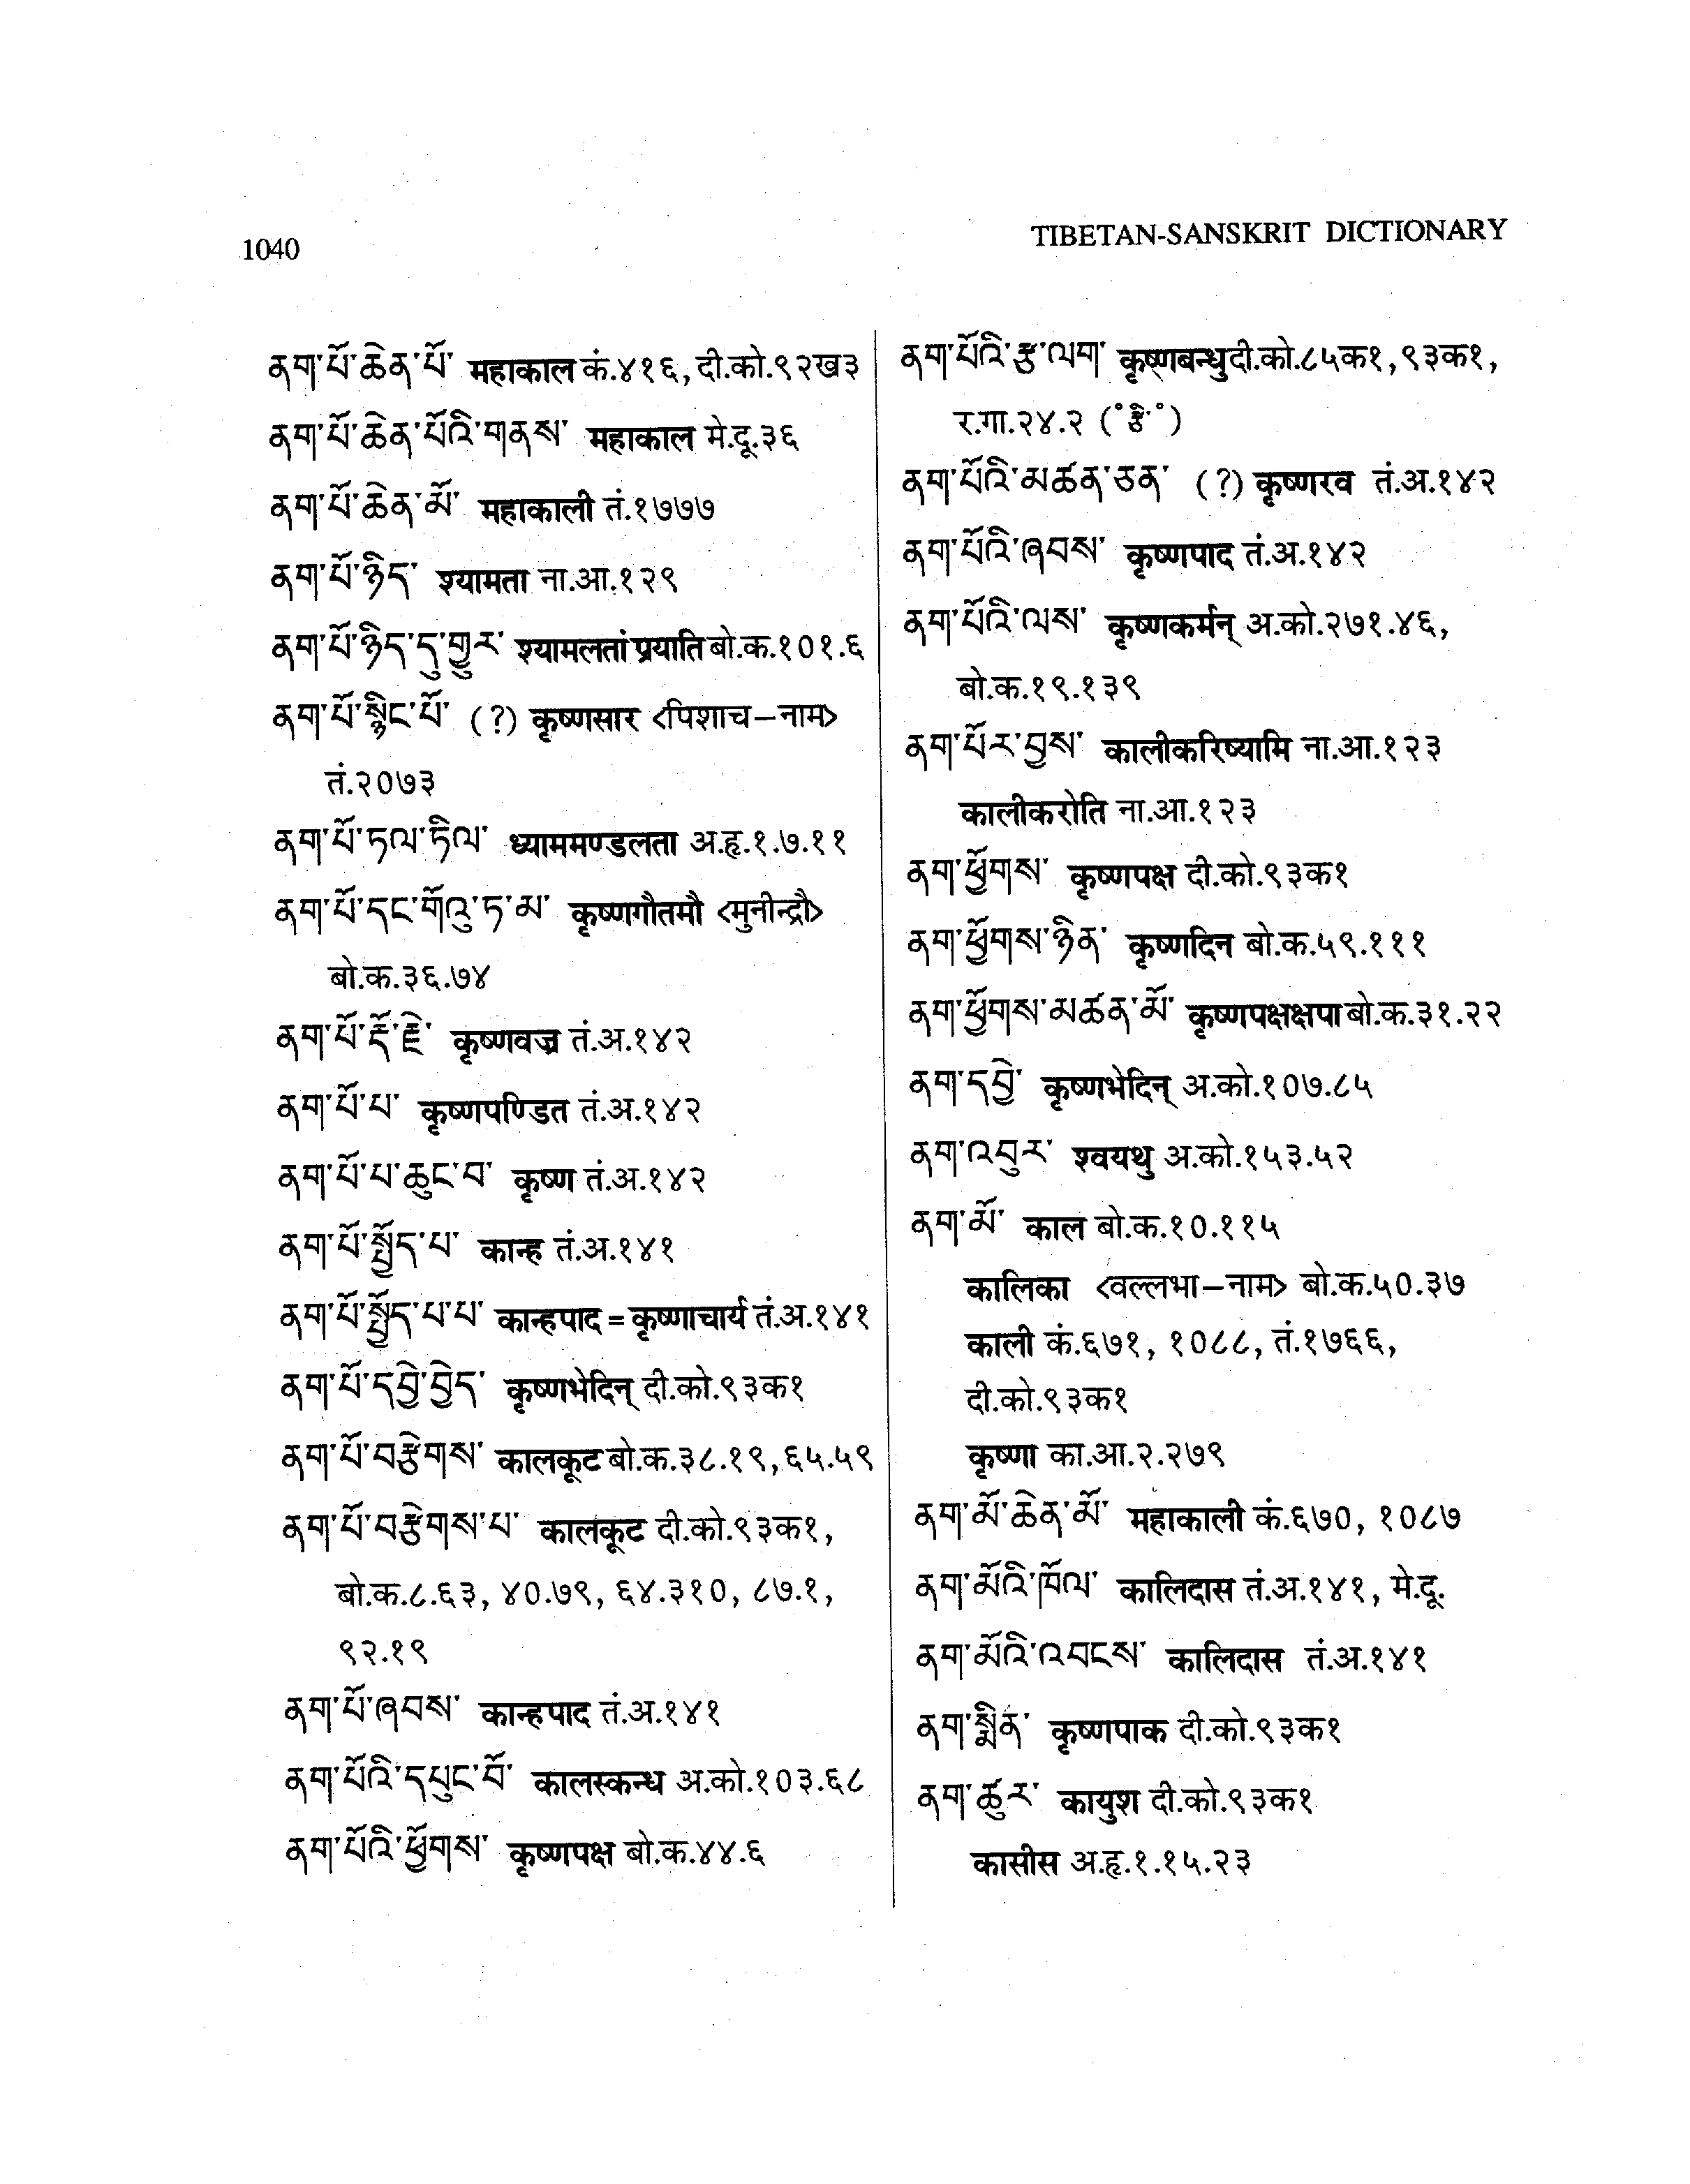 1040
TIBETAN-SANSKRIT DICTIONARY
ནག་པོ་ཆེན་པོ་ महाकाल कं.४१६, दी.को.९२ख३
ནག་པོ་ཆེན་པོའི་གནས་ महाकाल मे.दू.३६
ནག་པོ་ཆེན་མོ་ महाकाली तं.१७७७
ནག་པོ་ཉིད་ श्यामता ना.आ.१२९
ནག་པོ་ཉིད་དུ་གྱུར་ श्यामलतां प्रयाति बो.क.१०१.६
ནག་པོ་སྙིང་པོ་ (?) कृष्णसार <पिशाच–नाम>
तं.२०७३
ནག་པོ་ཏལ་ཏིལ་ ध्याममण्डलता अ.हृ.१.७.११
ནག་པོ་དང་གོའུ་ཏ་མ་ कृष्णगौतमौ <मुनीन्द्रौ>
बो.क.३६.७४
ནག་པོ་རྡོ་རྗེ་ कृष्णवज्र तं.अ.१४२
ནག་པོ་པ་ कृष्णपण्डित तं.अ.१४२
ནག་པོ་པ་ཆུང་བ་ कृष्ण तं.अ.१४२
ནག་པོ་སྤྱོད་པ་ कान्ह तं.अ.१४१
ནག་པོ་སྤྱོད་པ་པ་ कान्हपाद = कृष्णाचार्य तं.अ.१४१
ནག་པོ་དབྱེ་བྱེད་ कृष्णभेदिन् दी.को.९३क१
ནག་པོ་བརྩེགས་ कालकूट बो.क.३८.१९, ६५.५९
ནག་པོ་བརྩེགས་པ་ कालकूट दी.को.९३क१,
बो.क.८.६३, ४०.७९, ६४.३१०, ८७.१,
९२.१९
ནག་པོ་ཞབས་ कान्हपाद तं.अ.१४१
ནག་པོའི་དཔུང་བོ་ कालस्कन्ध अ.को.१०३.६८
ནག་པོའི་ཕྱོགས་ कृष्णपक्ष बो.क.४४.६
ནག་པོའི་རྩ་ལག་ कृष्णबन्धु दी.को.८५क१, ९३क१,
र.गा.२४.२ (°རྩི་°)
ནག་པོའི་མཚན་ཅན་ (?) कृष्णरव तं.अ.१४२
ནག་པོའི་ཞབས་ कृष्णपाद तं.अ.१४२
ནག་པོའི་ལས་ कृष्णकर्मन् अ.को.२७१.४६,
बो.क.१९.१३९
ནག་པོར་བྱས་ कालीकरिष्यामि ना.आ.१२३
कालीकरोति ना.आ.१२३
ནག་ཕྱོགས་ कृष्णपक्ष दी.को.९३क१
ནག་ཕྱོགས་ཉིན་ कृष्णदिन बो.क.५९.१११
ནག་ཕྱོགས་མཚན་མོ་ कृष्णपक्षक्षपा बो.क.३१.२२
ནག་དབྱེ་ कृष्णभेदिन् अ.को.१०७.८५
ནག་འབུར་ श्वयथु अ.को.१५३.५२
ནག་མོ་ काल बो.क.१०.११५
कालिका <वल्लभा–नाम> बो.क.५०.३७
काली कं.६७१, १०८८, तं.१७६६,
दी.को.९३क१
कृष्णा का.आ.२.२७९
ནག་མོ་ཆེན་མོ་ महाकाली कं.६७०, १०८७
ནག་མོའི་ཁོལ་ कालिदास तं.अ.१४१, मे.दू.
ནག་མོའི་འབངས་ कालिदास तं.अ.१४१
ནག་སྨིན་ कृष्णपाक दी.को.९३क१
ནག་ཚུར་ कायुश दी.को.९३क१
कासीस अ.हृ.१.१५.२३